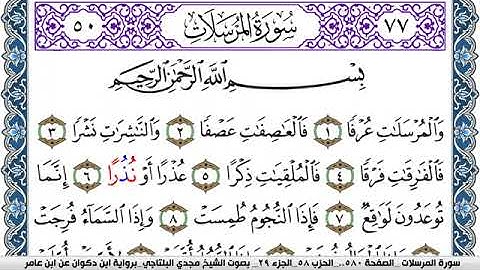 ٥٠ سُورَةُ المُرْسَلَاتِ ٧٧
بِسْمِ اللَّهِ الرَّحْمَٰنِ الرَّحِيمِ
وَالْمُرْسَلَاتِ عُرْفًا ١ فَالْعَاصِفَاتِ عَصْفًا ٢ وَالنَّاشِرَاتِ نَشْرًا ٣
فَالْفَارِقَاتِ فَرْقًا ٤ فَالْمُلْقِيَاتِ ذِكْرًا ٥ عُذْرًا أَوْ نُذُرًا ٦ إِنَّمَا
تُوعَدُونَ لَوَاقِعٌ ٧ فَإِذَا النُّجُومُ طُمِسَتْ ٨ وَإِذَا السَّمَاءُ فُرِجَتْ
سورة المرسلات_ الصفحة ٥٨٠_ الحزب ٥٨_ الجزء ٢٩_ بصوت الشيخ مجدي البلتاجي_برواية ابن ذكوان عن ابن عامر